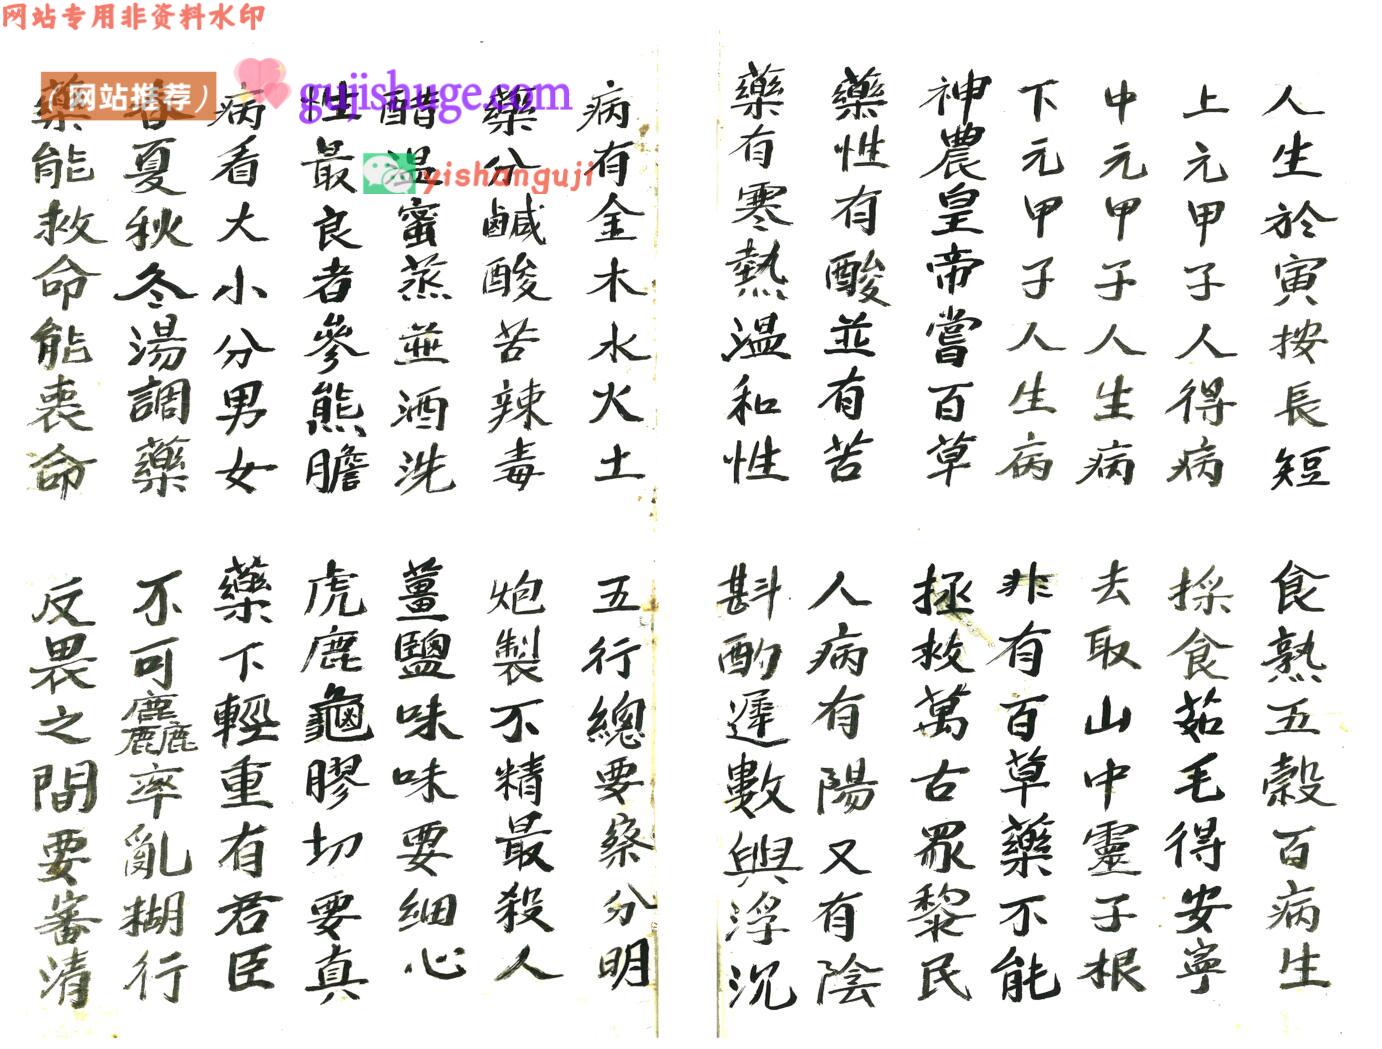 网站专用非资料水印
(网站推荐)
gujishuge.com
yishanguji
人生於寅按長短 食熟五穀百病生
上元甲子人得病 採食茹毛得安寧
中元甲子人生病 去取山中靈子根
下元甲子人生病 非有百草藥不能
神農皇帝嘗百草 拯救萬古眾黎民
藥性有酸並有苦 人病有陽又有陰
藥有寒熱温和性 斟酌遲數與浮沉
病有金木水火土 五行總要察分明
藥分鹹酸苦辣毒 炮製不精最殺人
醋温蜜蒸並酒洗 薑鹽味味要細心
性最良者參熊膽 虎鹿龜膠切要真
病看大小分男女 藥下輕重有君臣
春夏秋冬湯調藥 不可麤率亂糊行
藥能救命能喪命 反畏之間要審清